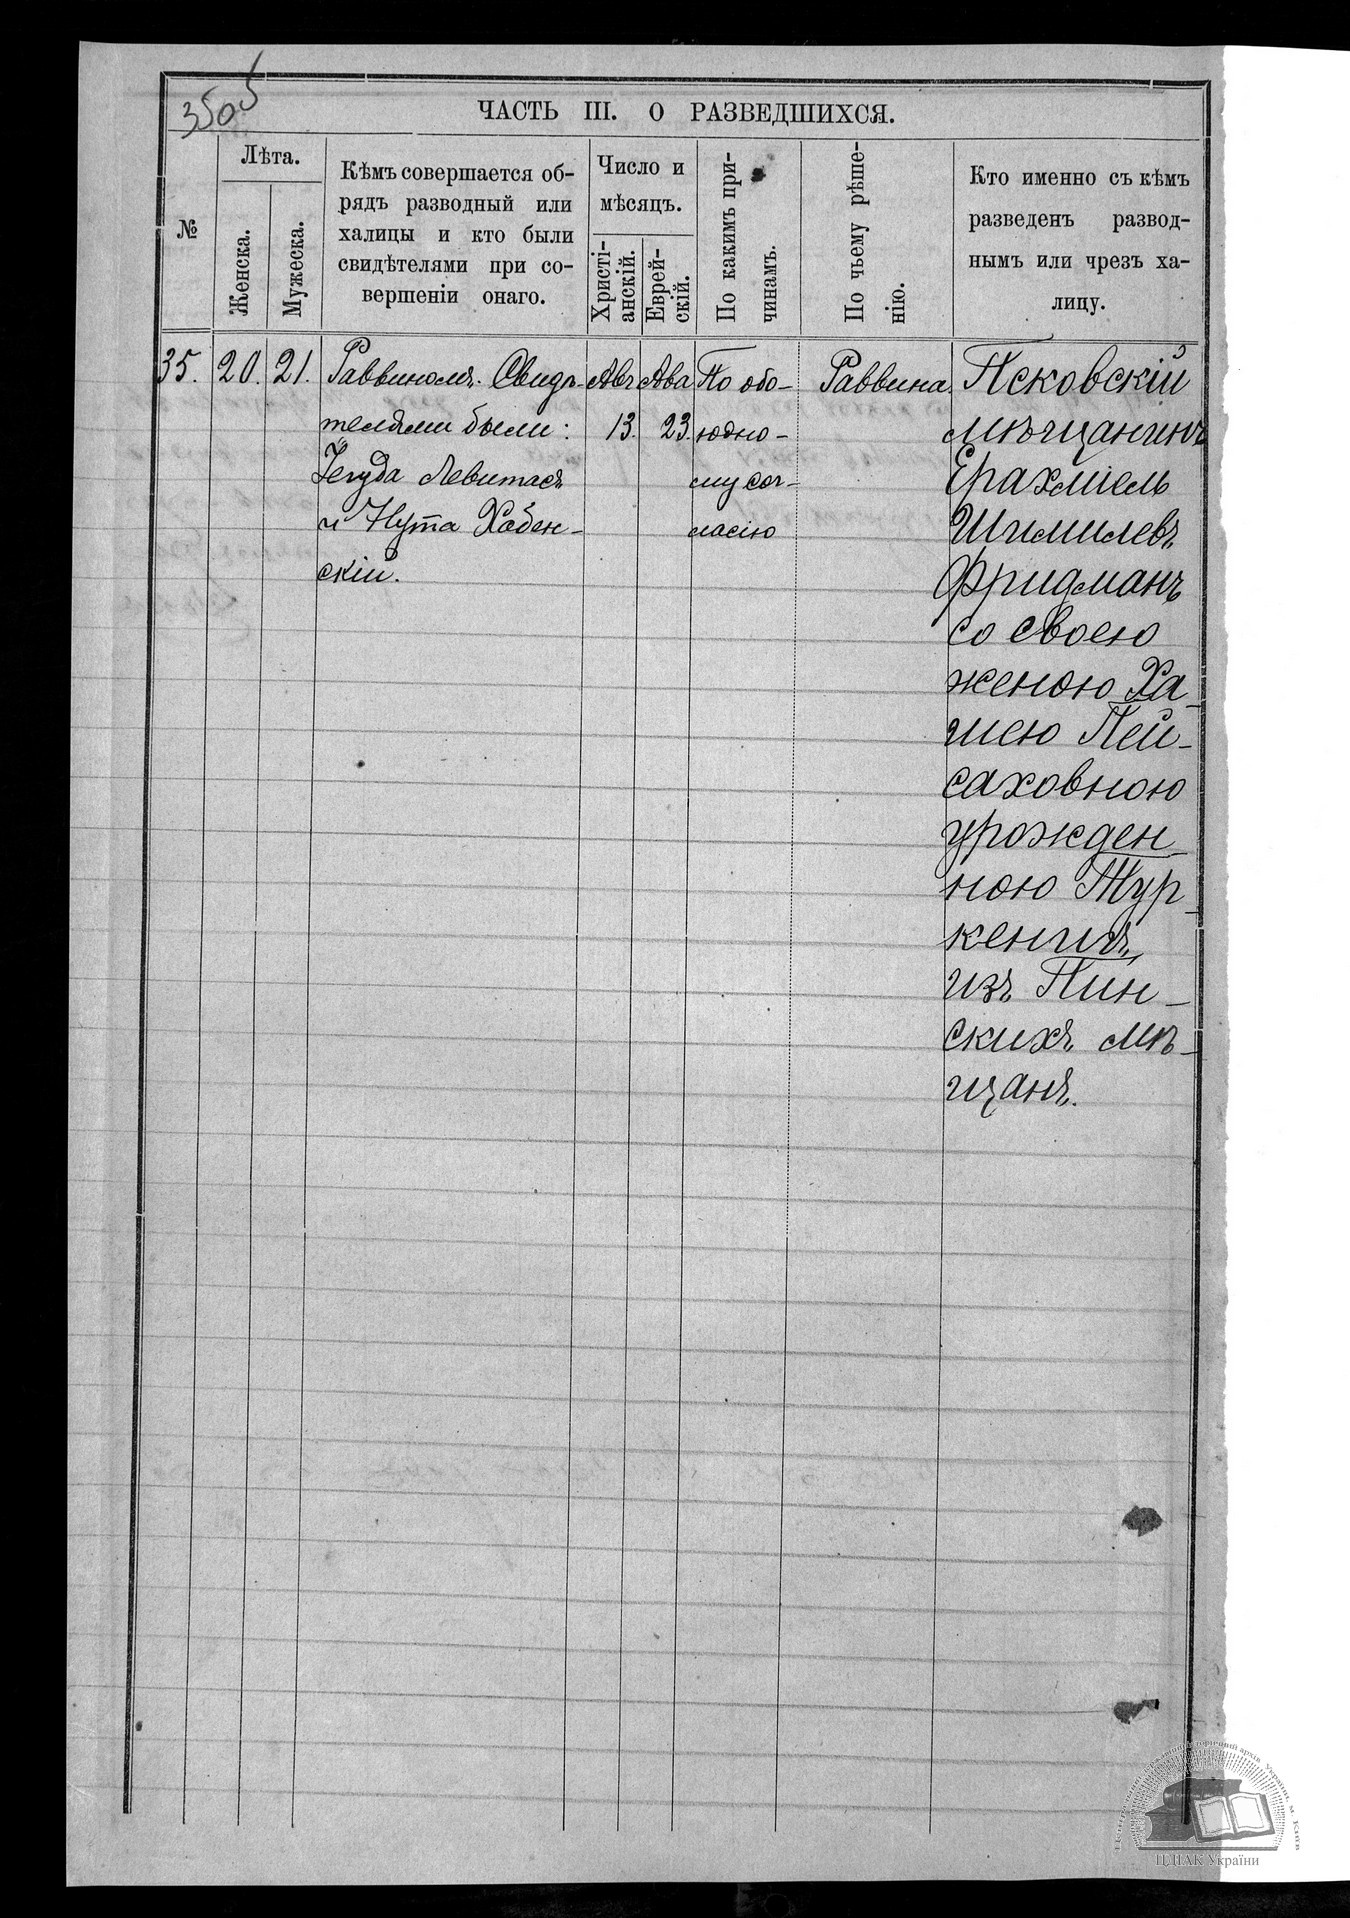 3505
ЧАСТЬ III. О РАЗВЕДШИХСЯ.
№
Лѣта.
Женска.
Мужеска.
Кѣмъ совершается об-
рядъ разводный или
халицы и кто были
свидѣтелями при со-
вершеніи онаго.
Число и
мѣсяцъ.
Христі-
анскій.
Еврей-
скій.
По какимъ при-
чинамъ.
По чьему рѣше-
нію.
Кто именно съ кѣмъ
разведенъ развод-
нымъ или чрезъ ха-
лицу.
35.
20.
21.
Раввиномъ. Свидѣ-
телями были:
Іегуда Левитасъ
и Нута Хабен-
скій.
Авг
13.
Ава
23.
По обо-
юдно-
му сог-
ласію
Раввина.
Псковскій
мѣщанинъ
Ерахміель
Шмилевъ
Фридманъ
со своею
женою Ха-
шею Пей-
саховною
урожден-
ною Тур-
кеничъ,
изъ Пин-
скихъ мѣ-
щанъ.
ЦДІАК України